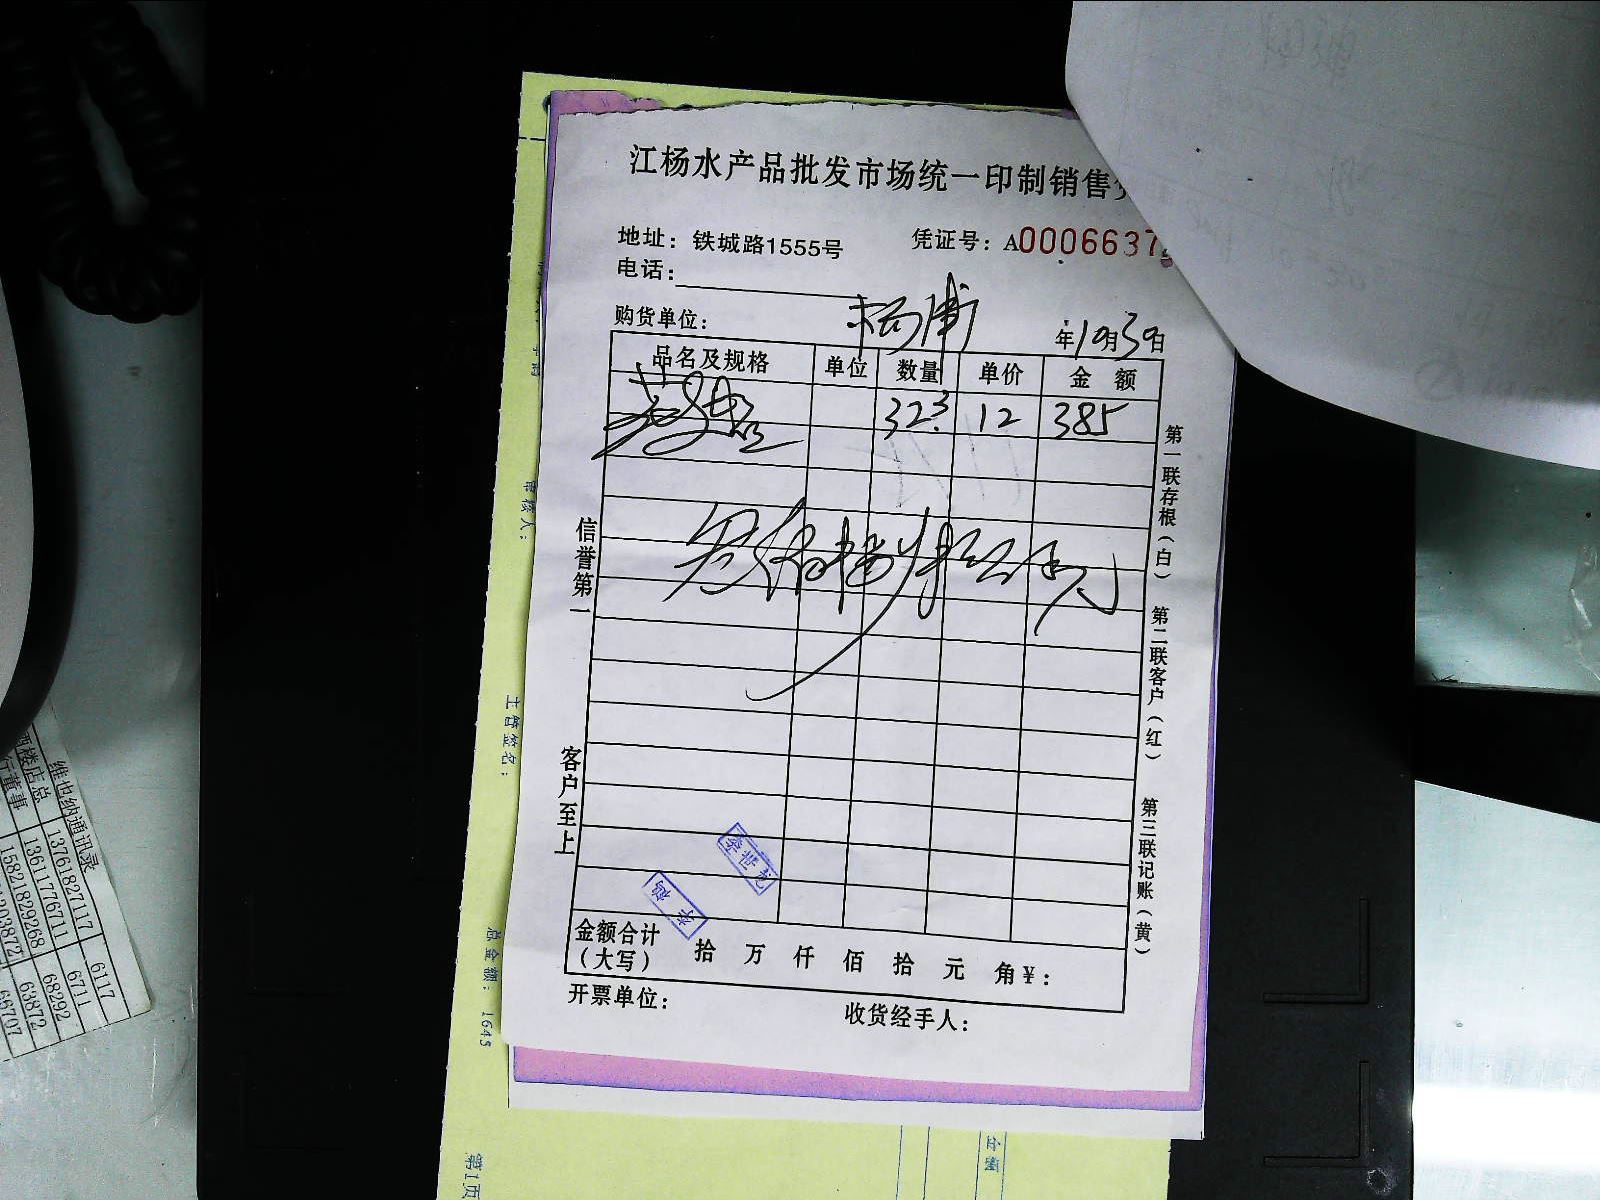 江杨水产品批发市场统一印制销售
地址：铁城路1555号
凭证号：A0006637
电话：
购货单位：
杨浦
年10月30日
品名及规格 单位 数量 单价 金 额
32.3 12 385
信誉第一
客户至上
第一联存根（白）
第二联客户（红）
第三联记账（黄）
金额合计
（大写）
拾 万 仟 佰 拾 元 角￥：
开票单位：
收货经手人：
李鹤
审核人：
主管签名：
总金额： 1645
第1页
金额
维也纳通讯录
酒楼店总 13761827117 6117
行董事 13611776711 6711
15821829268 68292
203872 63872
66707